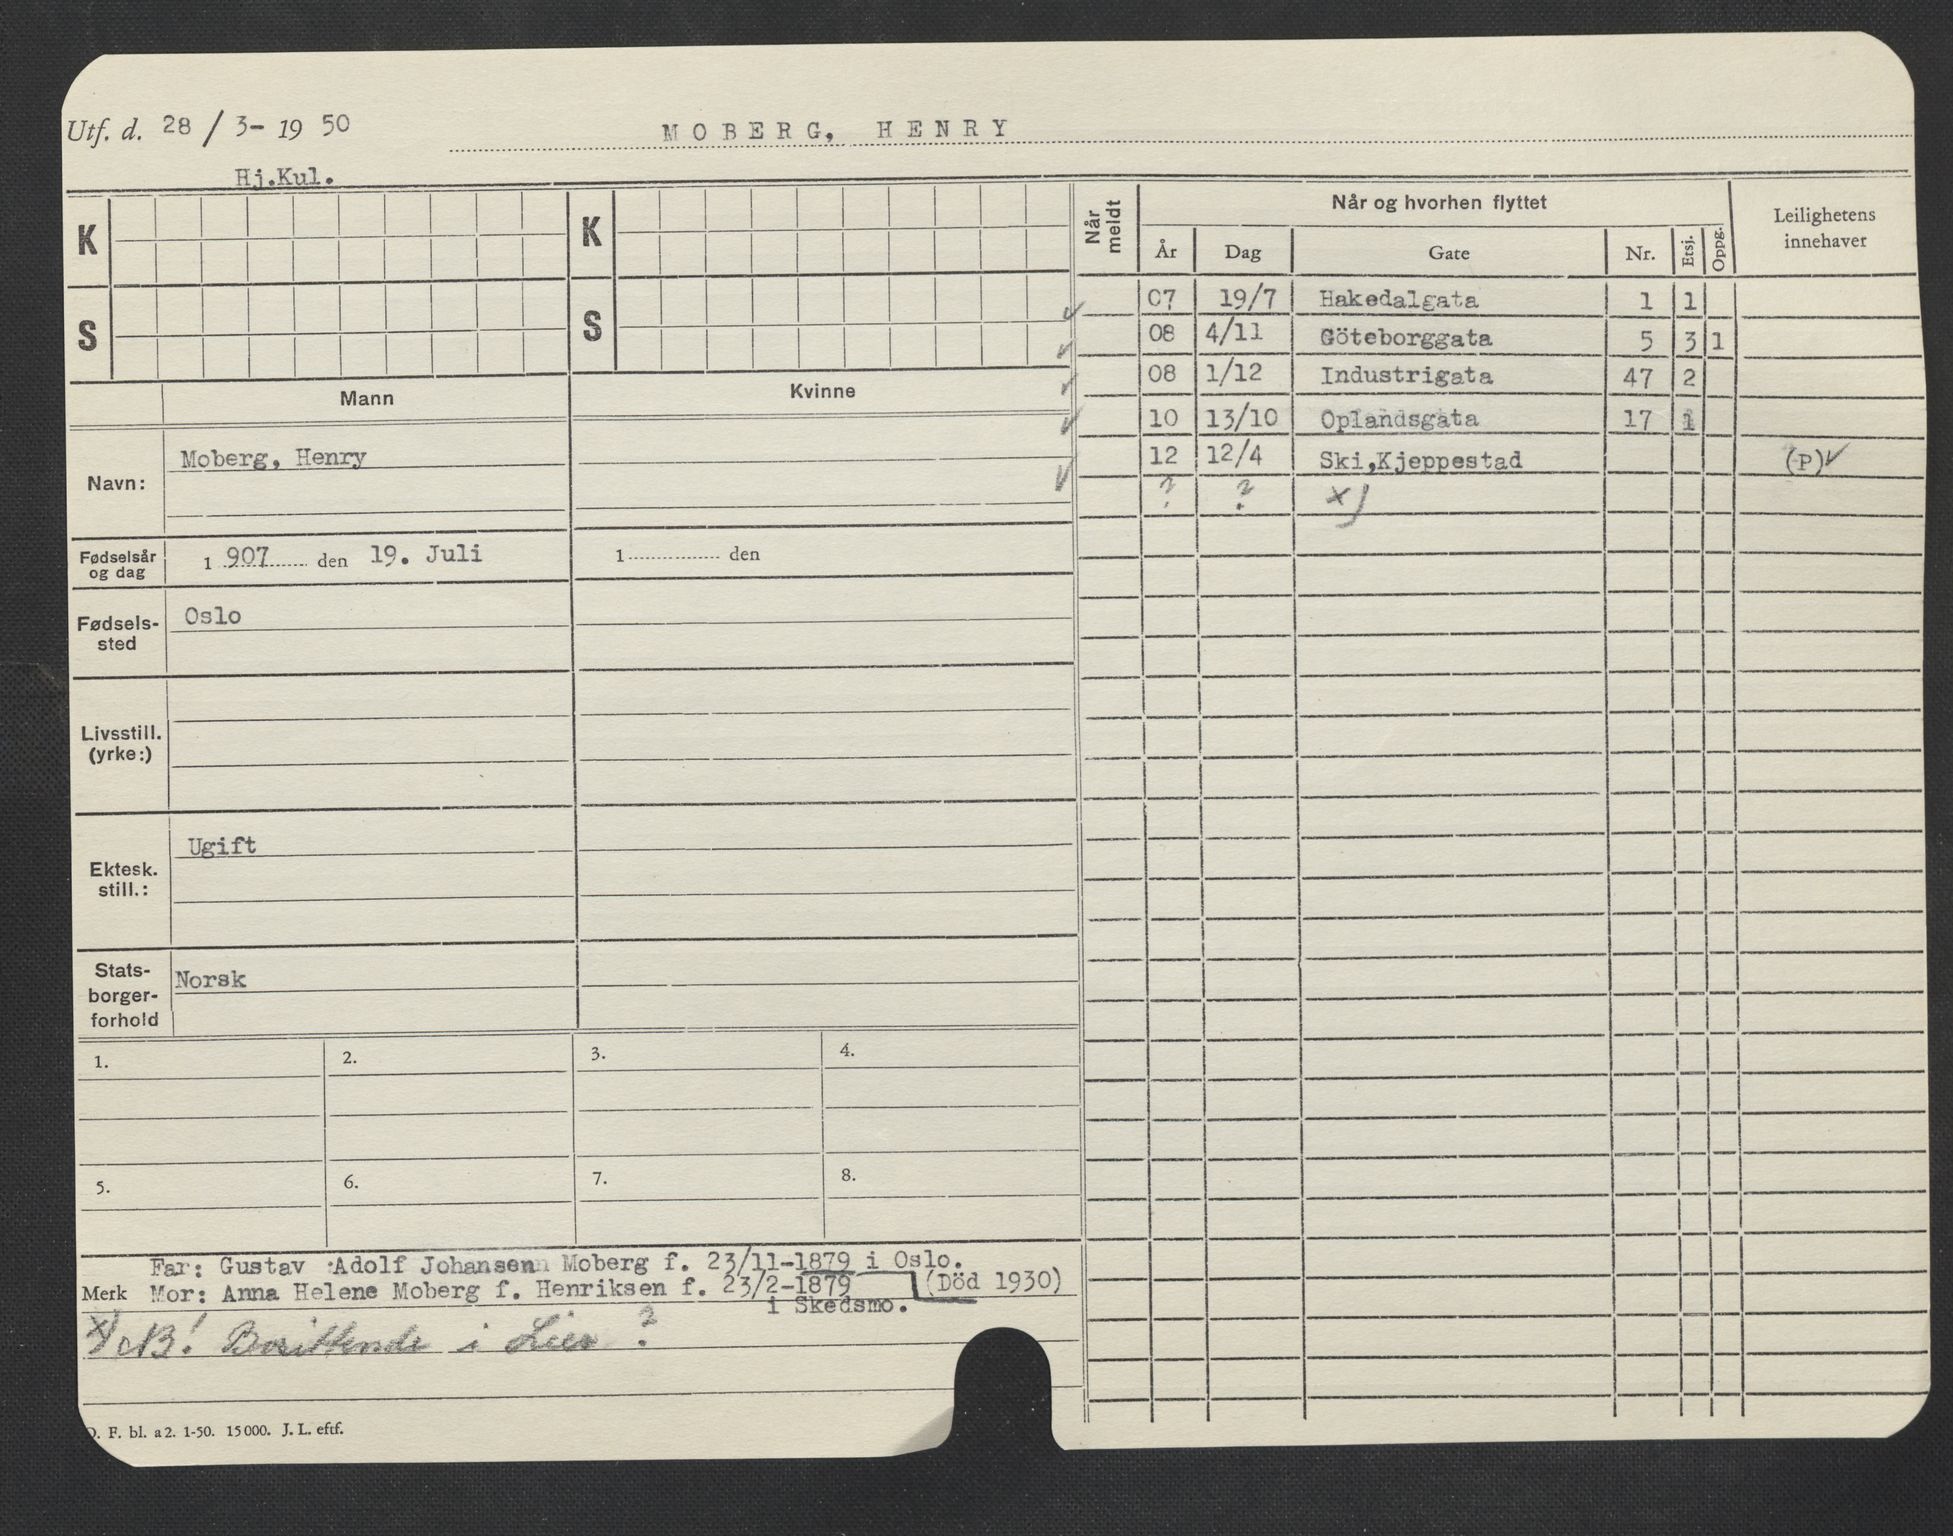 Utf. d. 28 / 3- 19 50
MOBERG, HENRY
Hj.Kul.
K
K
S
S
Mann
Kvinne
Navn: Moberg, Henry
Fødselsår og dag 1 907 den 19. Juli
1 den
Fødsels-
sted
Oslo
Livsstill.
(yrke:)
Ektesk.
still.:
Ugift
Stats-
borger-
forhold
Norsk
1. 2. 3. 4.
5. 6. 7. 8.
Far: Gustav Adolf Johansen Moberg f. 23/11-1879 i Oslo.
Merk Mor: Anna Helene Moberg f. Henriksen f. 23/2-1879 (Död 1930)
i Skedsmo.
x) NB! Bosittende i Lier ?
D. F. bl. a 2. 1-50. 15000. J. L. eftf.
Når meldt
Når og hvorhen flyttet
Leilighetens
innehaver
År Dag Gate Nr. Etsj. Oppg.
07 19/7 Hakedalgata 1 1
08 4/11 Göteborggata 5 3 1
08 1/12 Industrigata 47 2
10 13/10 Oplandsgata 17 1
12 12/4 Ski,Kjeppestad (P)
? ? x)